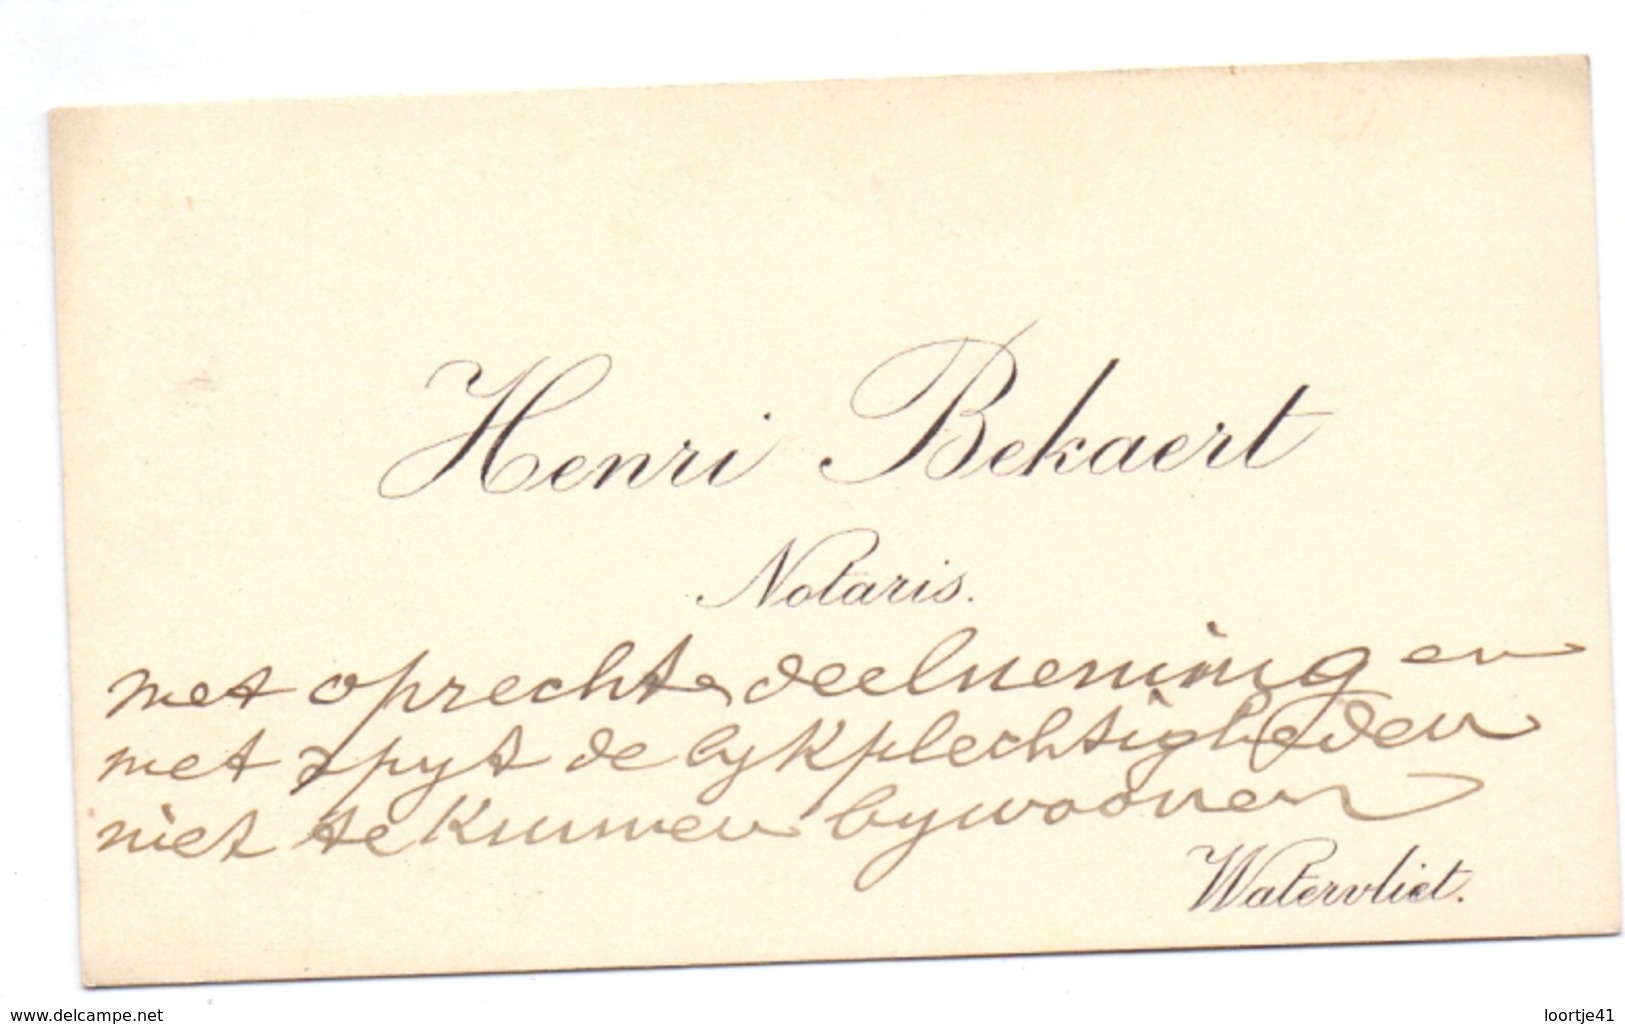 Henri Bekaert
Notaris.
met oprechte deelneming en
met spyt de lykplechtigheden
niet te kunnen bywoonen
Watervliet.
www.delcampe.net
loortje41